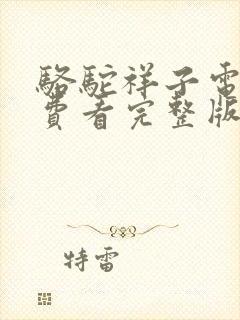 駱駝祥子電
費看完整版
特雷